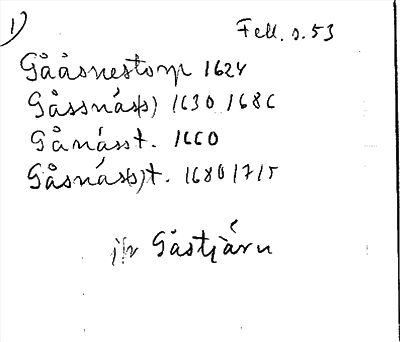 1) Fell. s. 53
Gååsnestorp 1624
Gåssnäs(s) 1630 1686
Gånässt. 1660
Gåsnäs(s)t. 1680 1715
jfr Gåstjärn